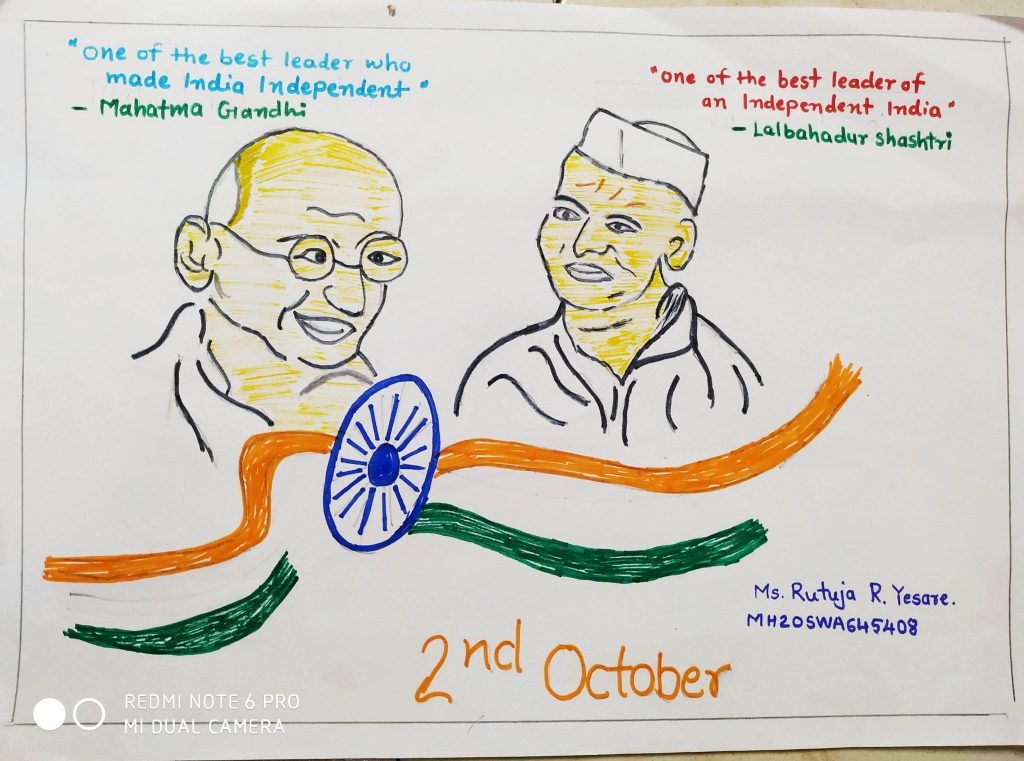 "One of the best leader who
made India Independent"
- Mahatma Gandhi
"one of the best leader of
an Independent India"
- Lalbahadur shashtri
Ms. Rutuja R. Yesare.
MH20SWA645408
2nd October
REDMI NOTE 6 PRO
MI DUAL CAMERA